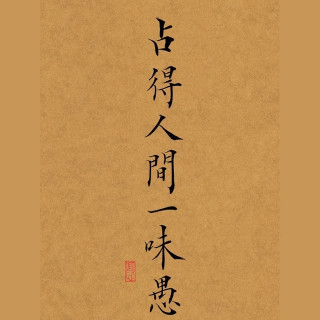 占得人間一味愚